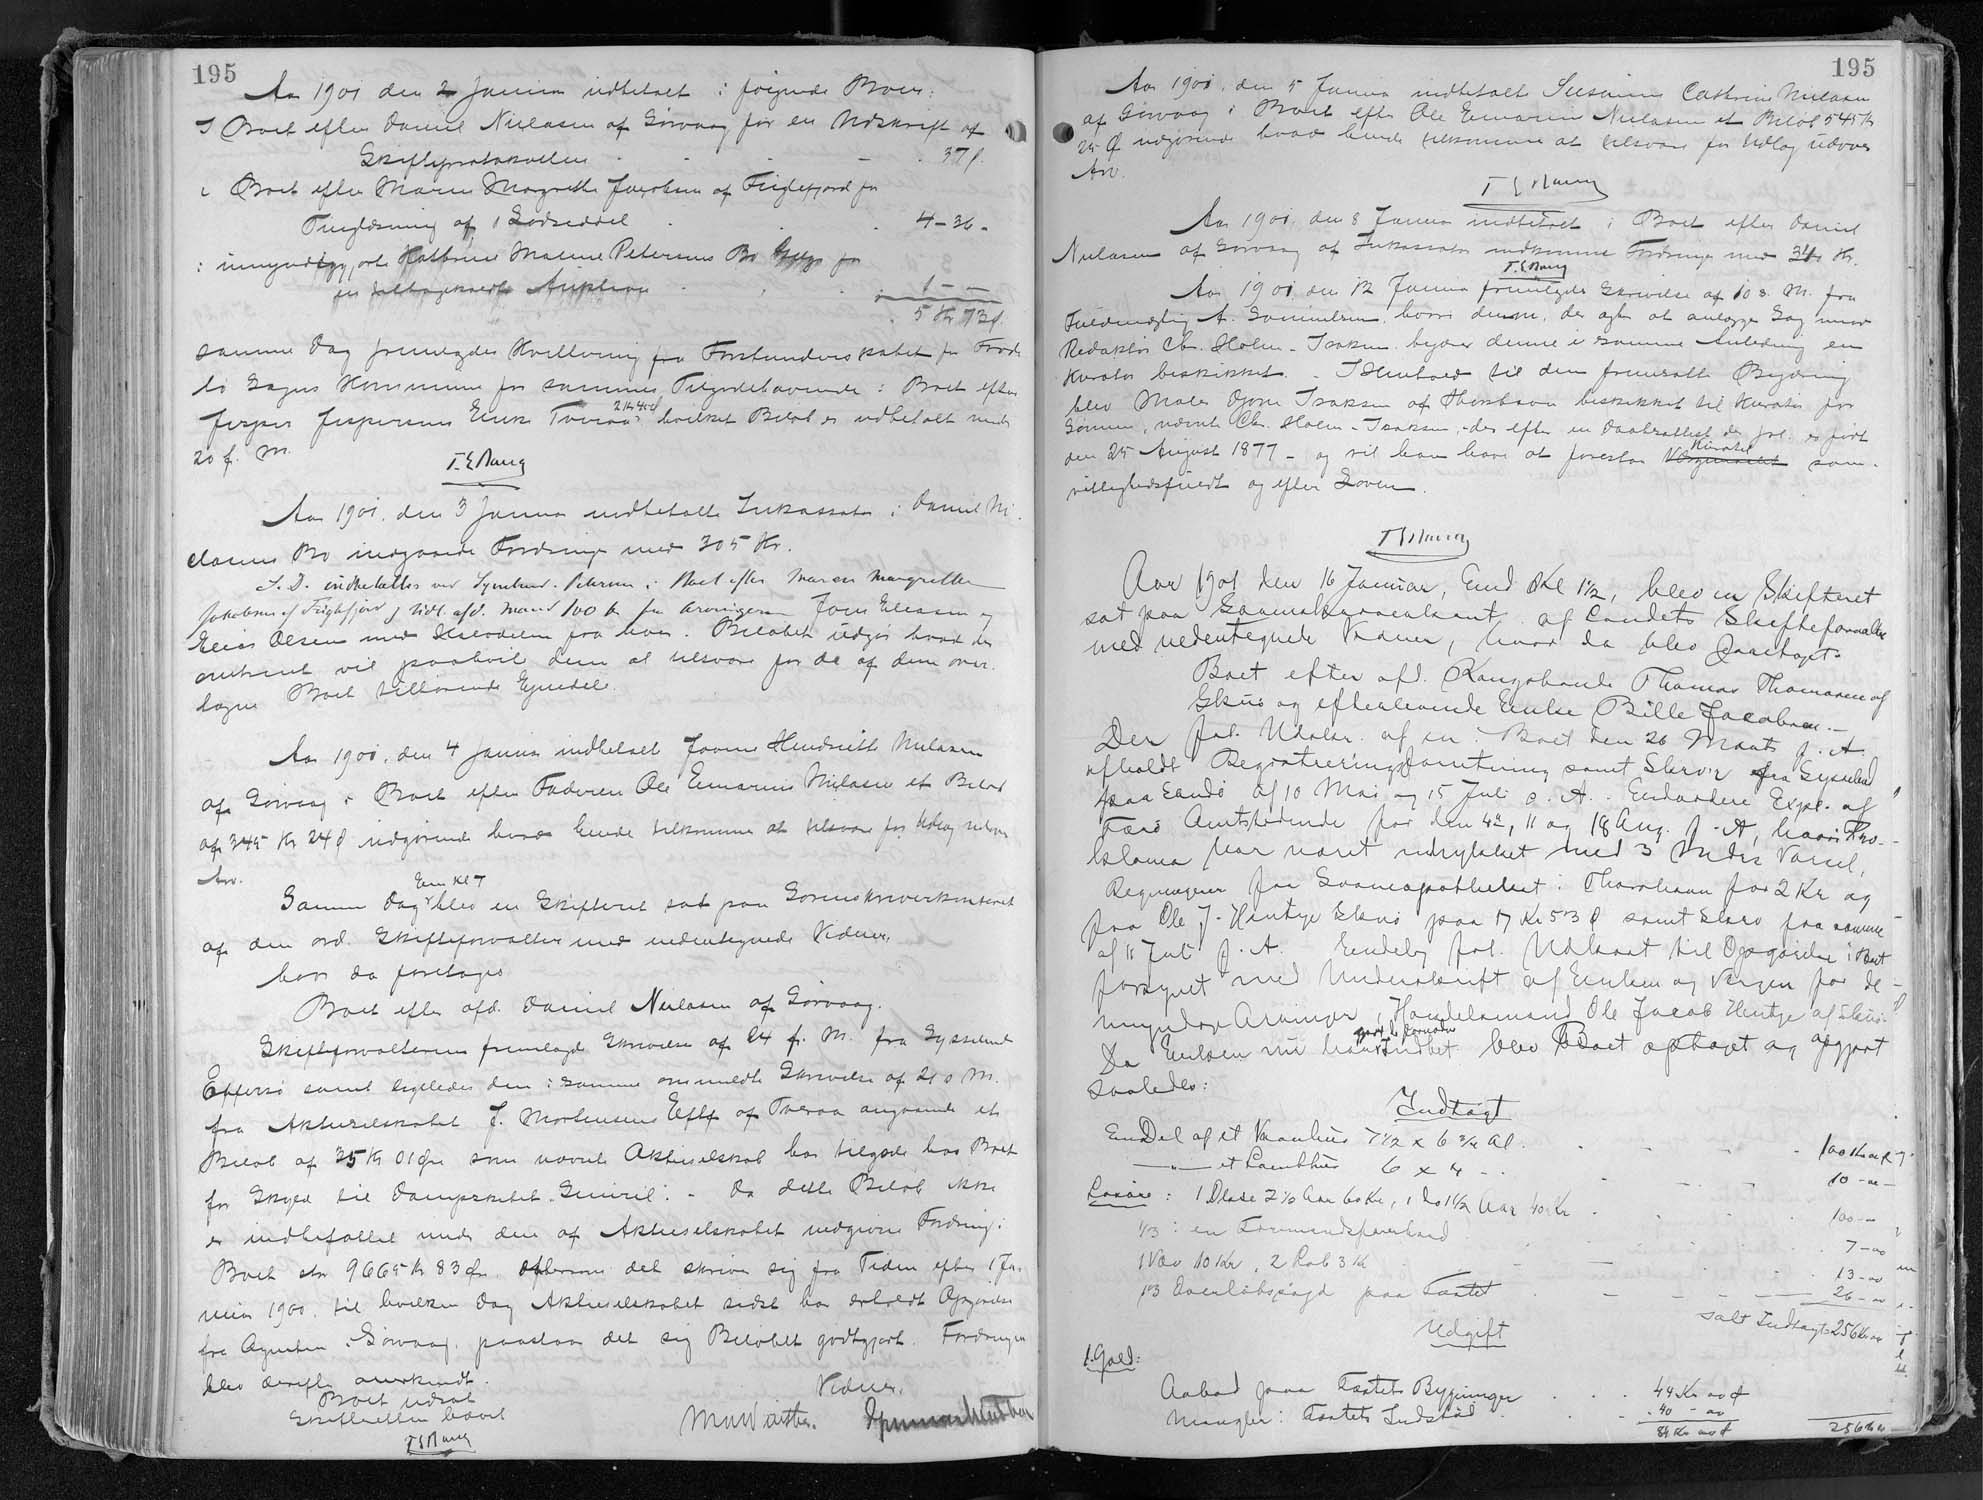 195
Aar 1901 den 2 Januar indbetalt i følgende Boer:
I Boet efter Daniel Nielasen af Sørvaag for en Udskrift af
Skifteprotokollen 37 f.
i Boet efter Maren Margrethe Jacobsen af Fuglefjord for
Tinglæsning af 1 Sødseddel 4-36-
i umyndiggjorte Kathrine Malene Petersens Bo for
en tilbagekaldt Auktion 1 - -
5 Kr 73 f.
samme Dag fremlagdes Kvittering fra Forstanderskabet for
Sogns Kommune for sammes Tilgodehavende i Boet efter
Jesper Jespersens Enke Tveraa 2 Kr 40 Ø hvilket Beløb er udbetalt under
20 f. M.
T. S. Bang
Aar 1901. den 3 Januar indbetalte Inkassator i Daniel Ni-
elasens Bo indgaaede Fordringer med 305 Kr.
S. D. indbetaltes ved Sysselmd. Petersen i Boet efter Maren Margrethe
Jakobsen af Fuglefjord og tidl. afd. Mand 100 Kr fra Arvingerne Joen Eliasen og
Elias Olsen med Halvdelen fra hver. Beløbet udgør hvad der
omtrent vil paahvile dem at tilsvare for de af dem over-
tagne Boet tilhørende Ejendele.
Aar 1901. den 4 Januar indbetalt Joanne Hendrikke Nielasen
af Sørvaag i Boet efter Faderen Ole Emarius Nielasen et Beløb
af 345 Kr 24 Ø udgørende hvad hende tilkommer at tilsvare for Udlæg udover
Arv.
Samme Dag Em Kl 7 blev en Skifteret sat paa Sorenskriverkontoret
af den ord. Skifteforvalter med undertegnede Vidner,
hvor da foretoges
Boet efter afd. Daniel Nielasen af Sørvaag.
Skifteforvalteren fremlagde Skrivelse af 24 f. M. fra Sysselmd
Effersø samt ligeledes den i samme ommeldte Skrivelse af 21 s. M.
fra Aktieselskabet J. Mortensens Eftf af Tveraa angaaende et
Beløb af 35 Kr 01 Øre som nævnte Aktieselskab har tilgode hos Boet
for Skyld til Dampskibet "Smiril". - Da dette Beløb ikke
er indbefattet under den af Aktieselskabet medgivne Fordring i
Boet stor 9665 Kr 83 Øre eftersom det skriver sig fra Tiden efter 1 Ja-
nuar 1900. til hvilken Dag Aktieselskabet sidst har erholdt Opgørelse
fra Agenten i Sørvaag, paastaar det sig Beløbet godtgjort. Fordringen
blev derefter anerkendt.
Boet udsat
Skifteretten hævet
T S Bang
Vidner.
195
Aar 1901. den 5 Januar indbetalte Susanne Cathrine Nielasen
af Sørvaag i Boet efter Ole Emarius Nielasen et Beløb 545 Kr
25 Ø udgørende hvad hende tilkommer at tilsvare for Udlæg udover
Arv.
T S Bang
Aar 1901. den 8 Januar indbetalt i Boet efter Daniel
Nielasen af Sørvaag af Inkassator indkomne Fordringer med 34 Kr.
T. S. Bang
Aar 1901. den 12 Januar fremlagdes Skrivelse af 10 s. M. fra
Fuldmægtig A. Samuelsen, hvori denne, der agter at anlægge Sag mod
Redaktør Chr. Holm-Isaksen begærer denne i samme Anledning en
Kurator beskikket. - I Henhold til den fremsatte Begæring
blev Maler Djoni Isaksen af Thorshavn beskikket til Kurator for
Sønnen, nævnte Chr. Holm-Isaksen, der efter en Daabsattest der fol. er født
den 25 August 1877 - og vil han have at forestaa Kuratel sam-
vittighedsfuldt og efter Loven.
T S Bang
Aar 1901 den 16 Januar, Emd Kl 1½, blev en Skifteret
sat paa Sorenskriverkont. af Landets Skifteforvalter
med undertegnede Vidner, hvor da blev foretaget
Boet efter afd. Kongsbonde Thomas Thomasen af
Skuø og efterlevende Enke Bille Jacobsen.-
Der fol. Udskr. af en i Boet den 26 Marts f. A.
afholdt Registreringsforretning samt Skriv. fra Sysselmd
paa Sandø af 10 Mai og 15 Juli s. A. Endvidere Expl. af
Færø Amtstidende for den 4de, 11 og 18 Aug. f. A, hvori Pro-
klama har været indrykket med 3 Mdrs Varsel,
Regninger fra Savneapotheket i Thorshavn for 2 Kr og
fra Ole J. Hentze Skuø paa 17 Kr 53 Ø samt Skriv fra samme
af 11 Juli f. A. Endelig fol. Udkast til Opgørelse i Boet
forsynet med Underskrift af Enken og Værgen for de
umyndige Arvinger, Handelsmand Ole Jacob Hentze af Skuø.
Da Enken nu har blev Boet optaget og opgjort
saaledes:
Indtægt
En Del af et Vaanhus 7½ x 6¾ Al. 100 Kr 00 Ø
-"- et Lambhus 6 x 4 - - 10 - 00 -
Løsøre: 1 Okse 2½ Aar 60 Kr, 1 Do 1½ Aar 40 Kr 100 - -
1/3 i en Færmandsfarerbaad 7 - 00
1 Væv 10 Kr, 2 Reb 3 Kr 13 - 00
1/3 Overløbsjagd paa Fæstet 26 - 00
salt Indtægt 256 Kr 00
Udgift
1. Gæld:
Aabod paa Fæstets Bygninger 44 Kr 00 Ø
Mangler i Fæstets Indstød 40 - 00
84 Kr 00 Ø 256 Kr 00